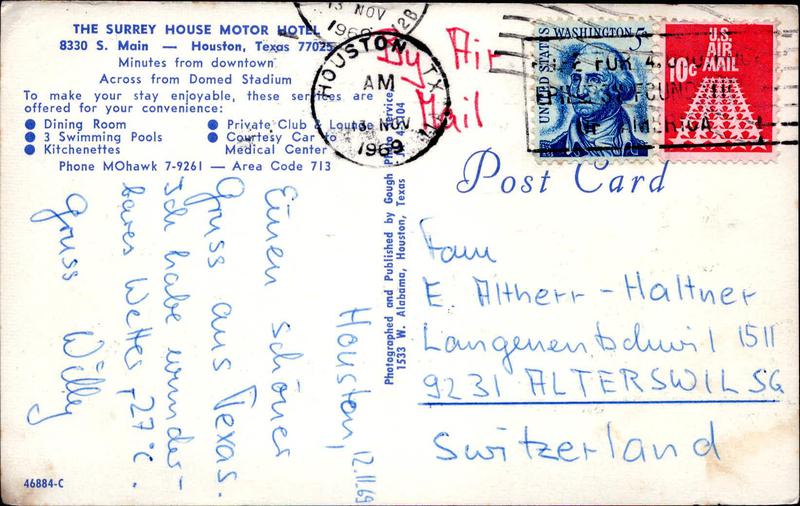 THE SURREY HOUSE MOTOR HOTEL
8330 S. Main — Houston, Texas 77025
Minutes from downtown
Across from Domed Stadium
To make your stay enjoyable, these services are
offered for your convenience:
● Dining Room
● 3 Swimming Pools
● Kitchenettes
● Private Club & Lounge
● Courtesy Car to
Medical Center
Phone MOhawk 7-9261 — Area Code 713
By Air
Mail
13 NOV
1969
HOUSTON, TX
AM
13 NOV
1969
UNITED STATES
WASHINGTON 5c
U.S.
AIR
MAIL
10c
OF AMERICA
Post Card
Photographed and Published by Gough Photo Service
1533 W. Alabama, Houston, Texas
Houston, 12.11.69
Einen schönen
Gruss aus Texas.
Ich habe wunder-
bares Wetter, +27°C.
Gruss Willy
Fam
E. Altherr-Haltner
Langenentschwil 1511
9231 ALTERSWIL SG
Switzerland
46884-C